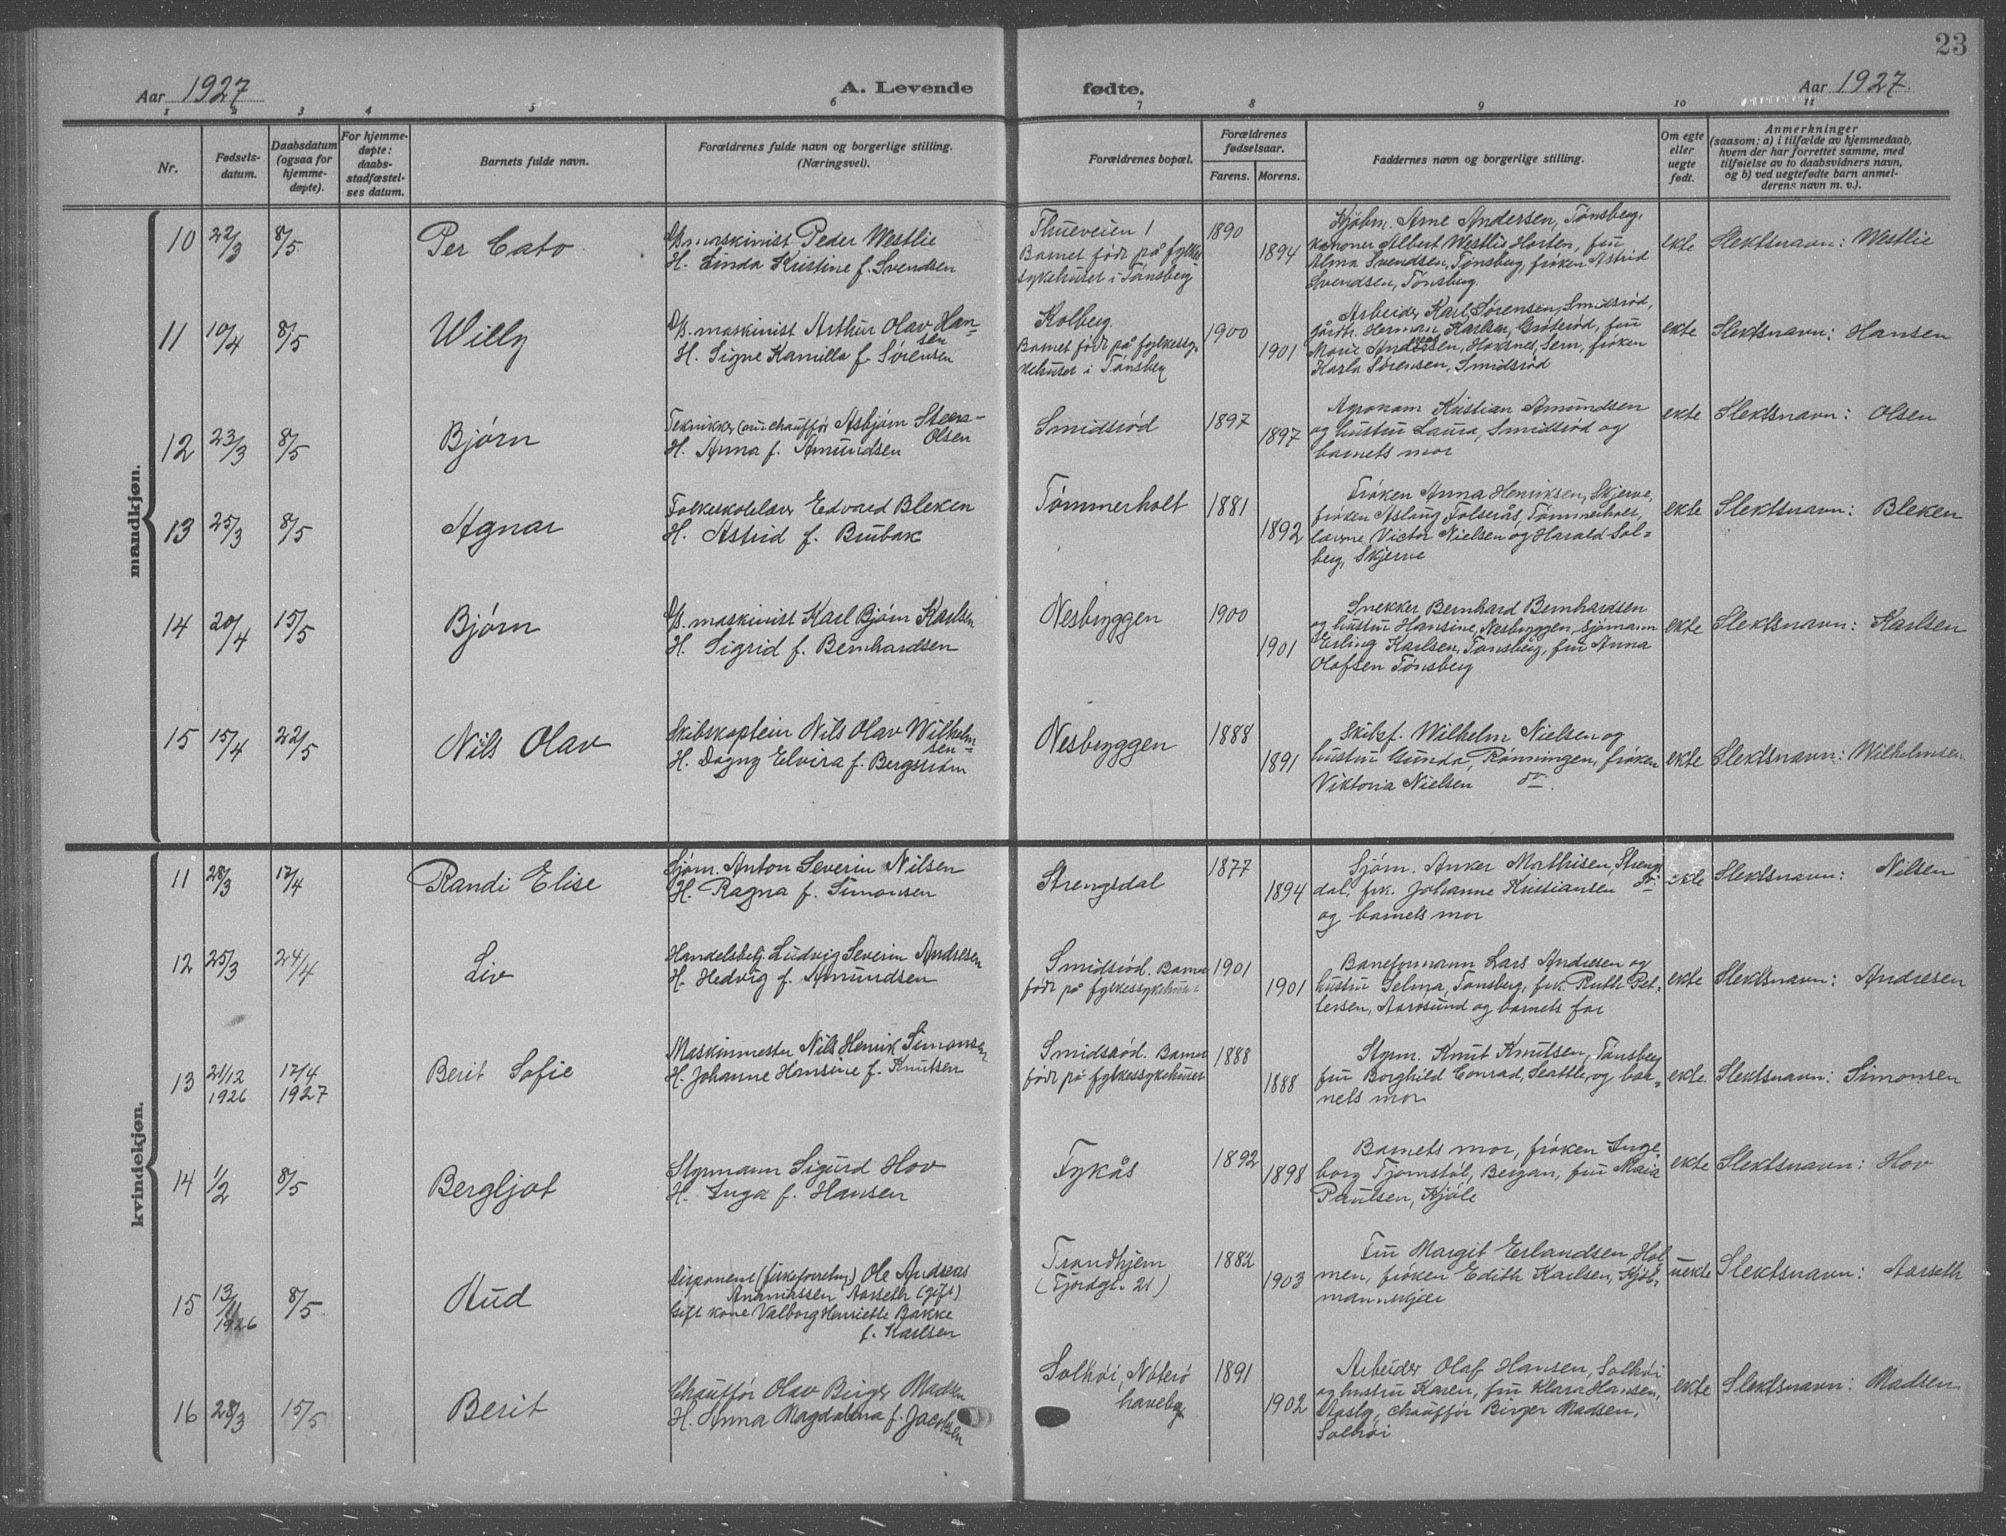 23
Aar 1927
A. Levende fødte.
Aar 1927.
1 2 3 4 5 6 7 8 9 10 11
Nr.
Fødsels-
datum.
Daabsdatum
(ogsaa for
hjemme-
døpte).
For hjemme-
døpte:
daabs-
stadfæstel-
ses datum.
Barnets fulde navn.
Forældrenes fulde navn og borgerlige stilling.
(Næringsvei).
Forældrenes bopæl.
Forældrenes
fødselsaar.
Farens. Morens.
Faddernes navn og borgerlige stilling.
Om egte
eller
uegte
født.
Anmerkninger
(saasom: a) i tilfælde av hjemmedaab,
hvem der har forrettet samme, med
tilføielse av to daabsvidners navn,
og b) ved uegtefødte barn anmel-
derens navn m. v.).
mandkjøn.
10 22/3 8/5 Per Cato
D/s maskinist Peder Westlie
H. Linda Kristine f. Svendsen
Thueveien 1
Barnet født på fylkes
sykehuset i Tønsberg
1890 1894
Kjøbm. Arne Andersen, Tønsberg,
kanoner Albert Westlie Horten, fru
Alma Svendsen, Tønsberg, frøken Astrid
Svendsen, Tønsberg.
ekte Slektsnavn: Westlie
11 10/4 8/5 Willy
D/s. maskinist Arthur Olav Han-
sen
H. Signe Kamilla f. Sørensen
Kolberg.
Barnet født på fylkessy-
kehuset i Tønsberg
1900 1901
Arbeider Karl Sørensen, Smidsrød,
gårdbr. Herman Karlsen, Grøterød, fru
Marie Andersen, Hoksnes, Sem, frøken
Karla Sørensen, Smidsrød
ekte Slektsnavn: Hansen
12 23/3 8/5 Bjørn
Tekniker (nu chauffør Asbjørn Steen-
Olsen
H. Anna f. Amundsen
Smidsrød
1897 1897
Agronom Kristian Amundsen
og hustru Laura, Smidsrød og
barnets mor
ekte Slektsnavn: Olsen
13 25/3 8/5 Agnar
Folkeskolelærer Edvard Bleken
H. Astrid f. Brubak
Tømmerholt
1881 1892
Frøken Anna Henriksen, Skjerve,
frøken Aslaug Tolserås, Tømmerholt,
lærerne Victor Nielsen og Harald Sol-
berg, Skjerve
ekte Slektsnavn: Bleken
14 20/4 15/5 Bjørn
D/s. maskinist Karl Bjørn Karlsen
H. Sigrid f. Bernhardsen
Nesbryggen
1900 1901
Snekker Bernhard Bernhardsen
og hustru Hansine, Nesbryggen, sjømann
Erling Karlsen, Tønsberg, fru Anna
Olafsen Tønsberg
ekte Slektsnavn: Karlsen
15 15/4 22/5 Nils Olav
Skibskaptein Nils Olav Wilhelm-
sen
H. Dagny Elvira f. Bergstrøm
Nesbryggen
1888 1891
Skibsf. Wilhelm Nielsen og
hustru Gunda, Rønningen, frøken
Viktoria Nielsen do.
ekte Slektsnavn: Wilhelmsen
kvindekjøn.
11 28/3 17/4 Randi Elise
Sjøm. Anton Severin Nilsen
H. Ragna f. Simonsen
Strengsdal
1877 1894
Sjøm. Anker Mathisen, Strengs
dal, frk. Johanne Kristiansen do
og barnets mor
ekte Slektsnavn: Nilsen
12 25/3 24/4 Liv
Handelsbetj. Ludvig Severin Andresen
H. Hedvig f. Amundsen
Smidsrød. Barnet
født på fylkessykehuset
1901 1901
Baneformann Lars Andresen og
hustru Selma, Tønsberg, frk. Ruth Pet-
tersen, Aarøsund og barnets far
ekte Slektsnavn: Andresen
13 21/12 1926 17/4 1927 Berit Sofie
Maskinmester Nils Henrik Simonsen
H. Johanne Hansine f. Knutsen
Smidsrød. Barnet
født på fylkessykehuset
1888 1888
Styrm. Knut Knutsen, Tønsberg
fru Borghild Conrad, Seattle, og bar-
nets mor
ekte Slektsnavn: Simonsen
14 1/2 8/5 Bergljot
Styrmann Sigurd Hov
H. Inga f. Hansen
Tykås
1892 1898
Barnets mor, frøken Inge-
borg Tjomstøl, Bergan, fru Maia
Paulsen, Kjøle
ekte Slektsnavn: Hov
15 13/11 1926 8/5 Aud
Disponent (fiskeforretng.) Ole Andreas
Ananiassen Aarseth (gift)
Gift kone Valborg Henriette Bakke
f. Karlsen
Trondhjem
(Fjordgt. 21)
1882 1903
Fru Margit Erlandsen, Hol
men, frøken Edith Karlsen, Kjøp-
mannskjær
uekte Slektsnavn: Aarseth
16 28/3 15/5 Berit
Chauffør Olav Birger Madsen
H. Anna Magdalena f. Jacobsen
Solhøi, Nøterø
haveby
1891 1902
Arbeider Olaf Hansen, Solhøi
og hustru Karen, fru Klara Hansen,
Aasly, chauffør Birger Madsen,
Solhøi
ekte Slektsnavn: Madsen